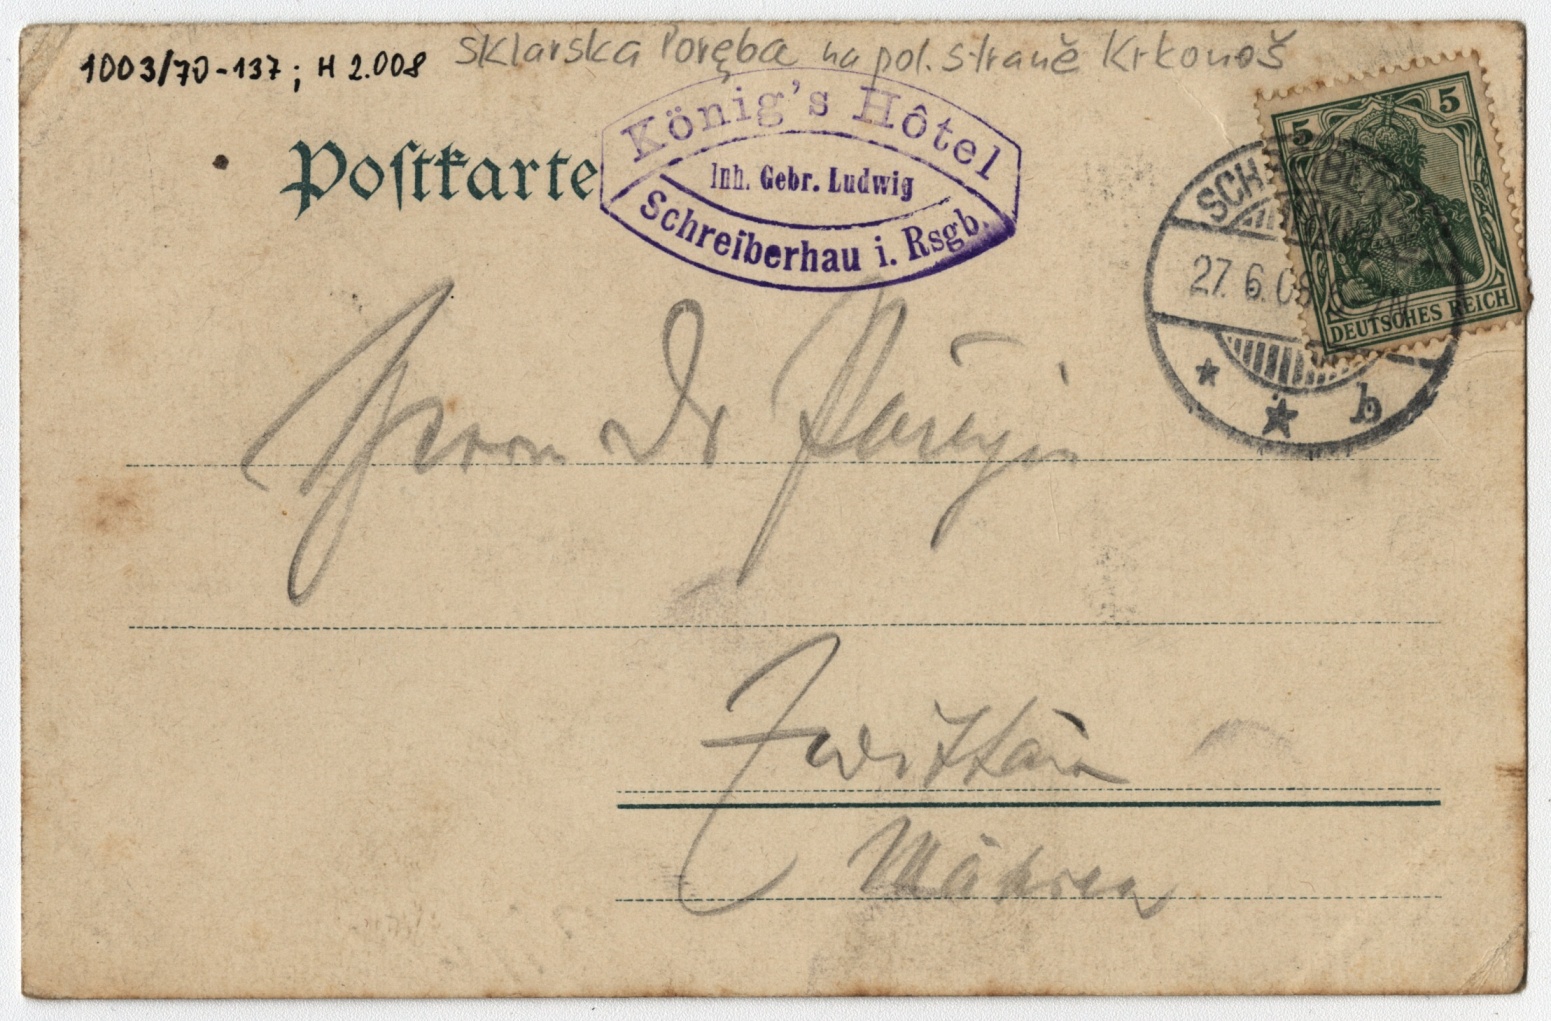 1003/70-137; H 2.008
Sklarska Poręba na pol. straně Krkonoš
Postkarte
König's Hôtel
Inh. Gebr. Ludwig
Schreiberhau i. Rsgb.
5 5
DEUTSCHES REICH
27. 6. 0
b
Herrn Dr
Zwittau
Mähren